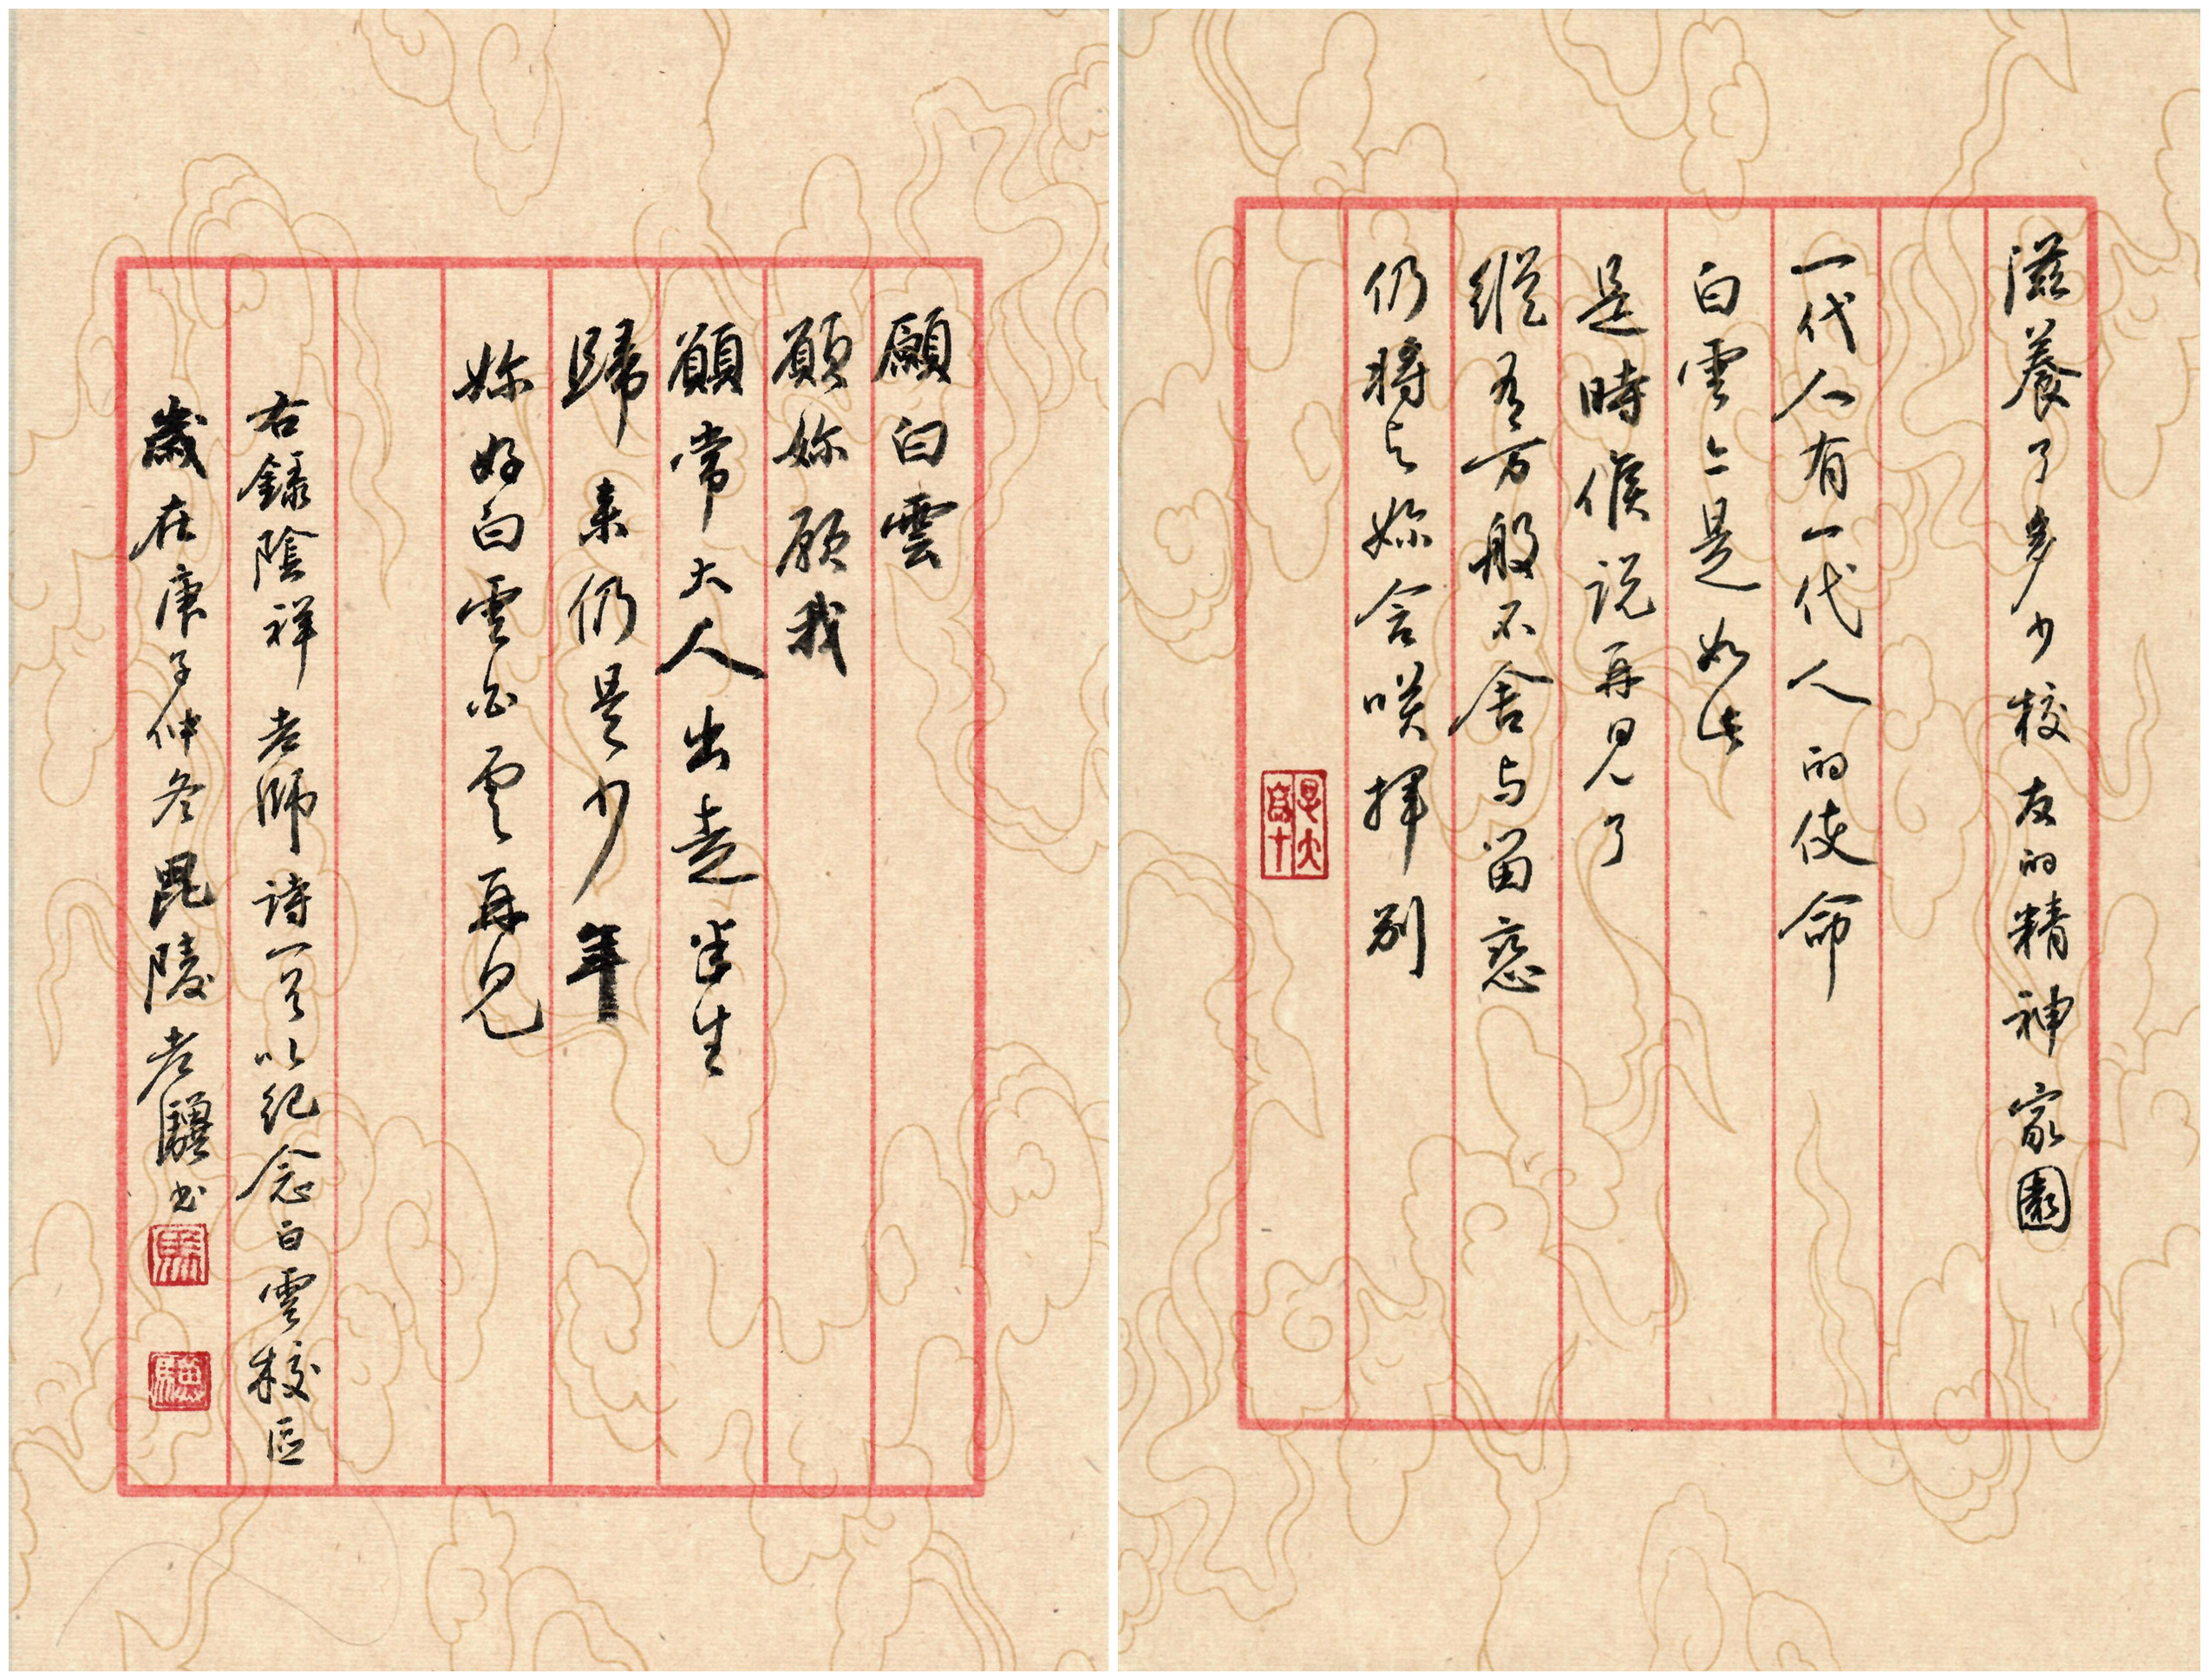 滋養了多少校友的精神家園
一代人有一代人的使命
白雲亦是如此
是時候说再見了
縱有万般不舍与留恋
仍将与妳含咲揮别
願白雲
願妳願我
願常大人出走半生
歸来仍是少年
妳好白雲白雲再見
右録陰祥老師詩一首以纪念白雲校區
歲在庚子仲冬毘陵老驥书